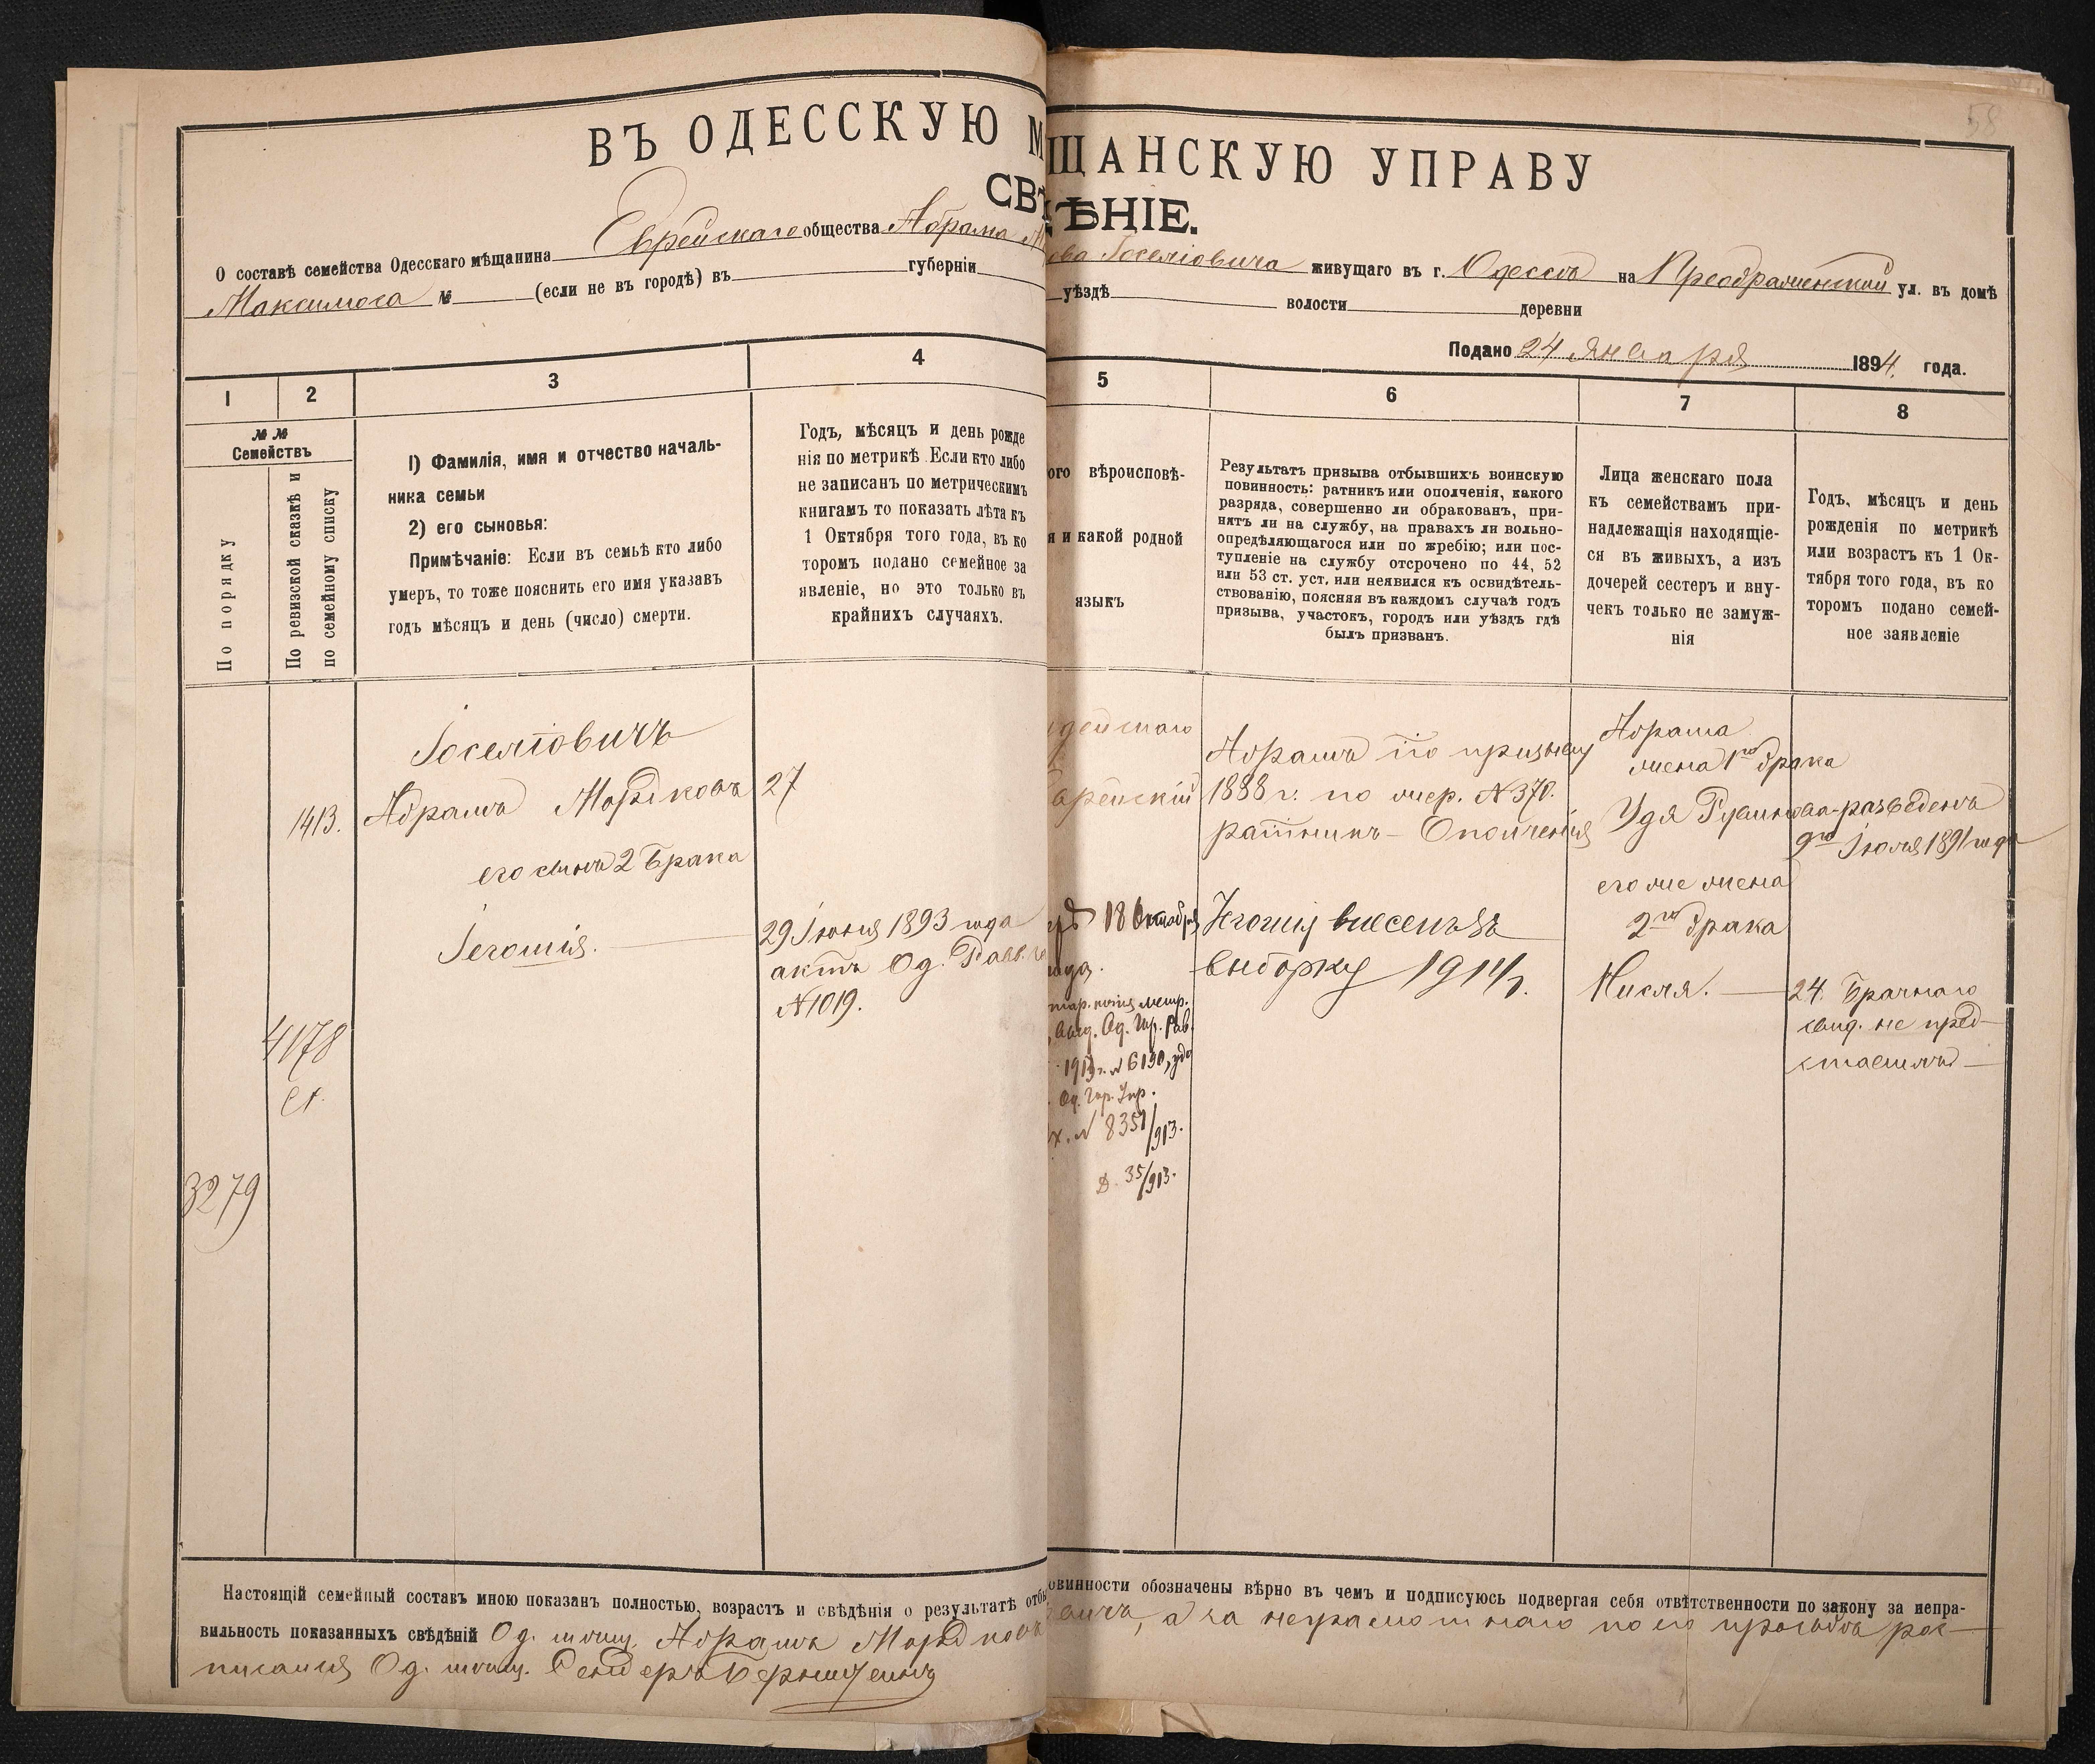 58
ВЪ ОДЕССКУЮ М ЩАНСКУЮ УПРАВУ
СВѢ ѢНІЕ.
О составѣ семейства Одесскаго мѣщанина Еврейскаго общества Абрама Іоселіовича живущаго въ г. Одессѣ на Преображенской ул. въ домѣ
Максимоса № (если не въ городѣ) въ губерніи уѣздѣ волости деревни
Подано 24 Января 1894 года.
1 2 3 4 5 6 7 8
№ №
Семействъ
По порядку
По ревизской сказкѣ и
по семейному списку
1) Фамилія, имя и отчество началь-
ника семьи
2) его сыновья:
Примѣчаніе: Если въ семьѣ кто либо
умеръ, то тоже пояснить его имя указавъ
годъ мѣсяцъ и день (число) смерти.
Годъ, мѣсяцъ и день рожде
нія по метрикѣ. Если кто либо
не записанъ по метрическимъ
книгамъ то показать лѣта къ
1 Октября того года, въ ко
торомъ подано семейное за
явленіе, но это только въ
крайнихъ случаяхъ.
ого вѣроисповѣ-
я и какой родной
языкъ
Результатъ призыва отбывшихъ воинскую
повинность: ратникъ или ополченія, какого
разряда, совершенно ли обракованъ, при-
нятъ ли на службу, на правахъ ли вольно-
опредѣляющагося или по жребію; или пос-
тупленіе на службу отсрочено по 44, 52
или 53 ст. уст. или неявился къ освидѣтель-
ствованію, поясняя въ каждомъ случаѣ годъ
призыва, участокъ, городъ или уѣздъ гдѣ
былъ призванъ.
Лица женскаго пола
къ семействамъ при-
надлежащія находящіе-
ся въ живыхъ, а изъ
дочерей сестеръ и вну-
чекъ только не замуж-
нія
Годъ, мѣсяцъ и день
рожденія по метрикѣ
или возрастъ къ 1 Ок-
тября того года, въ ко
торомъ подано семей-
ное заявленіе
Іоселіовичъ
1413. Абрамъ Мордковъ 27
его сынъ 2 Брака
Іегошія.
29 Іюня 1893 года
актъ Од. Равв.
№ 1019.
4178
3279
дейскаго
врейскій
18 Октября
года.
1913 г. № 6130, удо
Од. Гор. Упр.
х. № 8351/913.
Д. 35/913.
Абрамъ по призыву
1888 г. по жер. № 370.
ратникъ Ополченія
Іегошія внесенъ въ
выборку 1914 г.
Абрама
жена 1го брака
Удя Рувинова-разведенъ
9го Іюля 1891 года
его же жена
2го брака
Нисля.
24. Брачнаго
свид. не пред-
ставилъ
Настоящій семейный составъ мною показанъ полностью, возрастъ и свѣдѣнія о результатѣ отбы овинности обозначены вѣрно въ чемъ и подписуюсь подвергая себя отвѣтственности по закону за непра-
вильность показанныхъ свѣдѣній Од. мѣщ. Абрамъ Мордковъ вичъ, а за неграмотнаго по его просьбѣ рос-
писался Од. мѣщ. Сендеръ Бернштейнъ